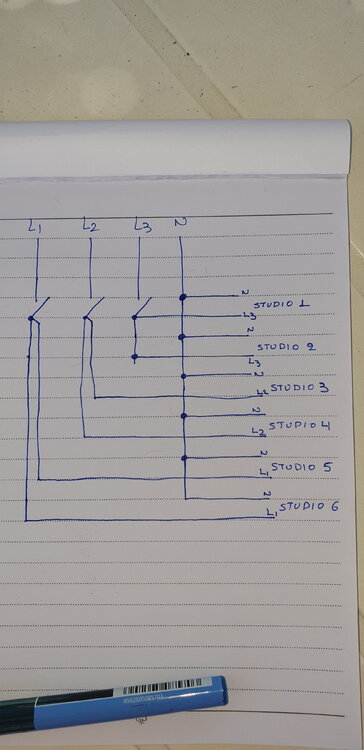 L1 L2 L3 N
N
STUDIO 1
L3
N
STUDIO 2
L3
N
L2 STUDIO 3
N
L2 STUDIO 4
N
L1 STUDIO 5
N
L1 STUDIO 6
4902505085703